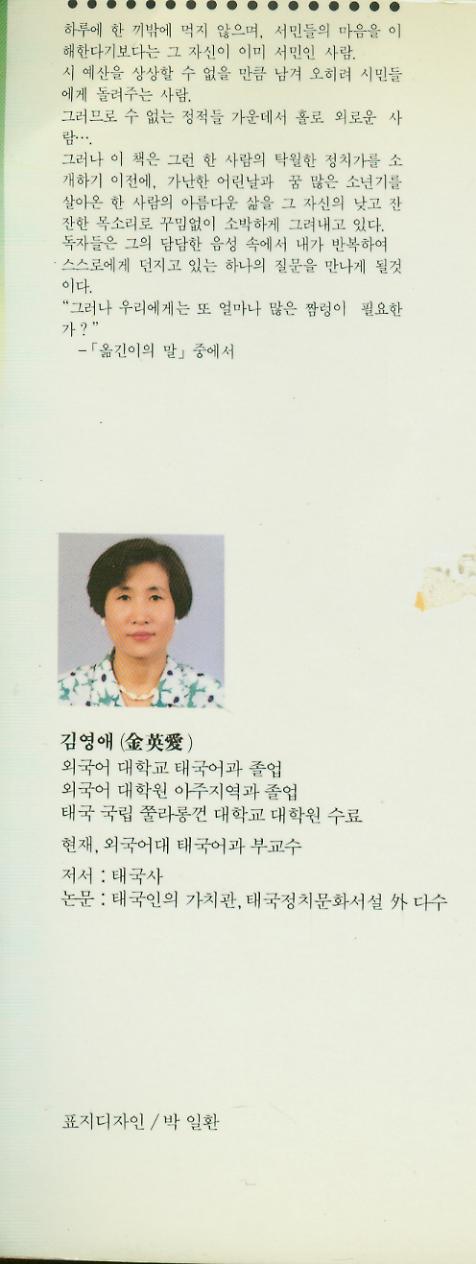 하루에 한 끼밖에 먹지 않으며, 서민들의 마음을 이
해한다기보다는 그 자신이 이미 서민인 사람.
시 예산을 상상할 수 없을 만큼 남겨 오히려 시민들
에게 돌려주는 사람.
그러므로 수 없는 정적들 가운데서 홀로 외로운 사
람….
그러나 이 책은 그런 한 사람의 탁월한 정치가를 소
개하기 이전에, 가난한 어린날과 꿈 많은 소년기를
살아온 한 사람의 아름다운 삶을 그 자신의 낮고 잔
잔한 목소리로 꾸밈없이 소박하게 그려내고 있다.
독자들은 그의 담담한 음성 속에서 내가 반복하여
스스로에게 던지고 있는 하나의 질문을 만나게 될것
이다.
“그러나 우리에게는 또 얼마나 많은 짬렁이 필요한
가?”
–「옮긴이의 말」중에서
김영애 (金英愛)
외국어 대학교 태국어과 졸업
외국어 대학원 아주지역과 졸업
태국 국립 쭐라롱껀 대학교 대학원 수료
현재, 외국어대 태국어과 부교수
저서 : 태국사
논문 : 태국인의 가치관, 태국정치문화서설 外 다수
표지디자인 / 박 일환